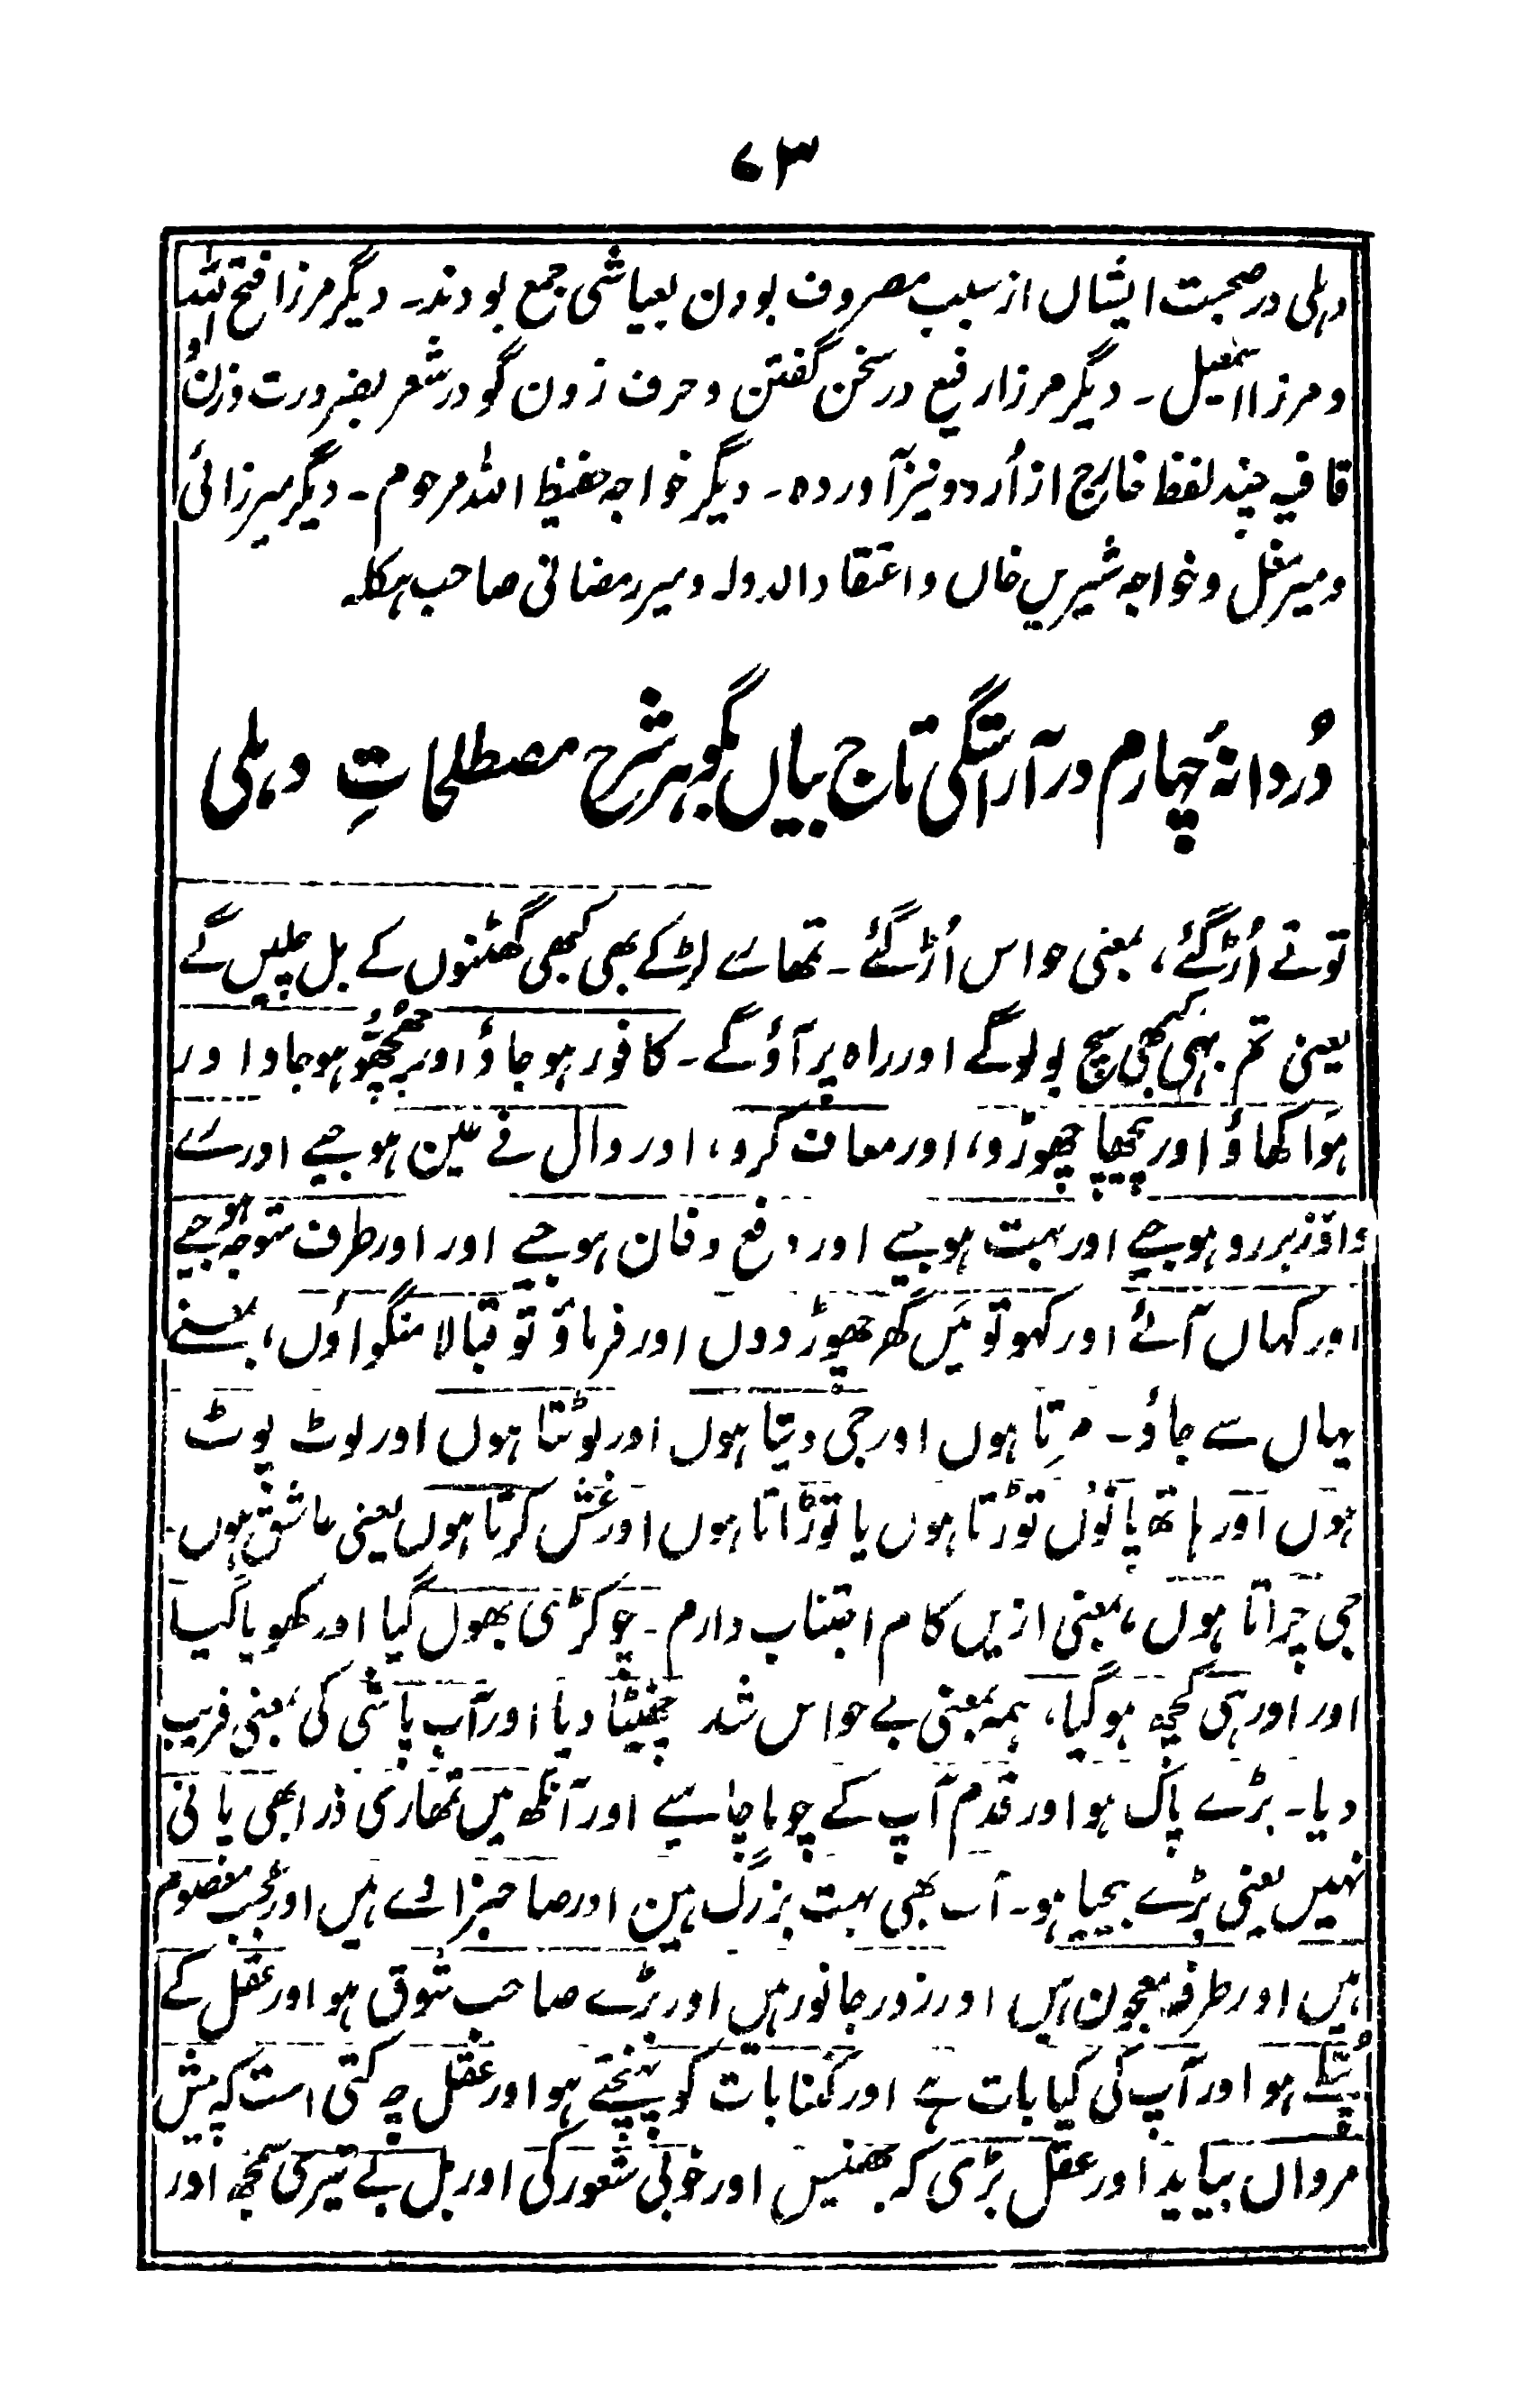 ۷۳
دہلی در صحبت ایشاں از سبب مصروف بودن بعیاشی جمع بودند۔ دیگر مرزا فتح اللہ
و مرزا اسمٰعیل۔ دیگر مرزا رفیع در سخن گفتن و حرف زدن گو در شعر بضرورت وزن و
قافیہ چند لفظ خارج از اُردو نیز آوردہ۔ دیگر خواجہ حفیظ اللہ مرحوم۔ دیگر میرزائی
و میر مغل و خواجہ شیریں خاں و اعتقاد الدولہ و میر رمضانی صاحب ہکلہ
دُردانۂ چہارم در آراستگی تاج بیاں بگوہر شرح مصطلحاتِ دہلی
توتے اُڑ گئے، بمعنی حواس اُڑ گئے۔ تمھارے لڑکے بھی کبھی گھٹنوں کے بل چلیں گے
یعنی تم بھی کبھی سچ بولو گے اور راہ پر آؤ گے۔ کافور ہو جاؤ اور ہو جاو اور
ہَوا کھاؤ اور پیچھا چھوڑو، اور معاف کرو، اور دال نے عین ہو جیے اور رے
واؤ زبر رو ہو جیے اور بہت ہو جیے اور دفع دفان ہو جیے اور اور طرف متوجہ ہو جیے
اور کہاں آئے اور کہو تو مَیں گھر چھوڑ دوں اور فرماؤ تو قبالا منگواؤں، بمعنے
یہاں سے جاؤ۔ مرتا ہوں اور جی دیتا ہوں اور لوٹتا ہوں اور لوٹ پوٹ
ہوں اور ہاتھ پانوں توڑتا ہوں یا توڑاتا ہوں اور غش کرتا ہوں یعنی عاشق ہوں۔
جی چراتا ہوں، بمعنی ازیں کام اجتناب دارم۔ چوکڑی بھول گیا اور کھویا گیا
اور اور ہی کچھ ہو گیا، ہمہ بمعنی بے حواس شد چھینٹا دیا اور آب پاشی کی بمعنی فریب
دیا۔ بڑے پاک ہو اور قدم آپ کے چوما چاہیے اور آنکھ میں تمھاری ذرا بھی پانی
نہیں یعنی بڑے بیحیا ہو۔ آپ بھی بہت بزرگ ہیں اور صاحبزادے ہیں اور عجب معصوم
ہیں اور طرفہ معجون ہیں اور زور جانور ہیں اور بڑے صاحب شوق ہو اور عقل کے
پُتلے ہو اور آپ کی کیا بات ہے اور کتنا بات کو پہنچتے ہو اور عقل چہ کتی است کہ پیش
مرداں بیاید اور عقل بڑی کہ بھینس اور خوبی شعور کی اور بل بے تیری سمجھ اور